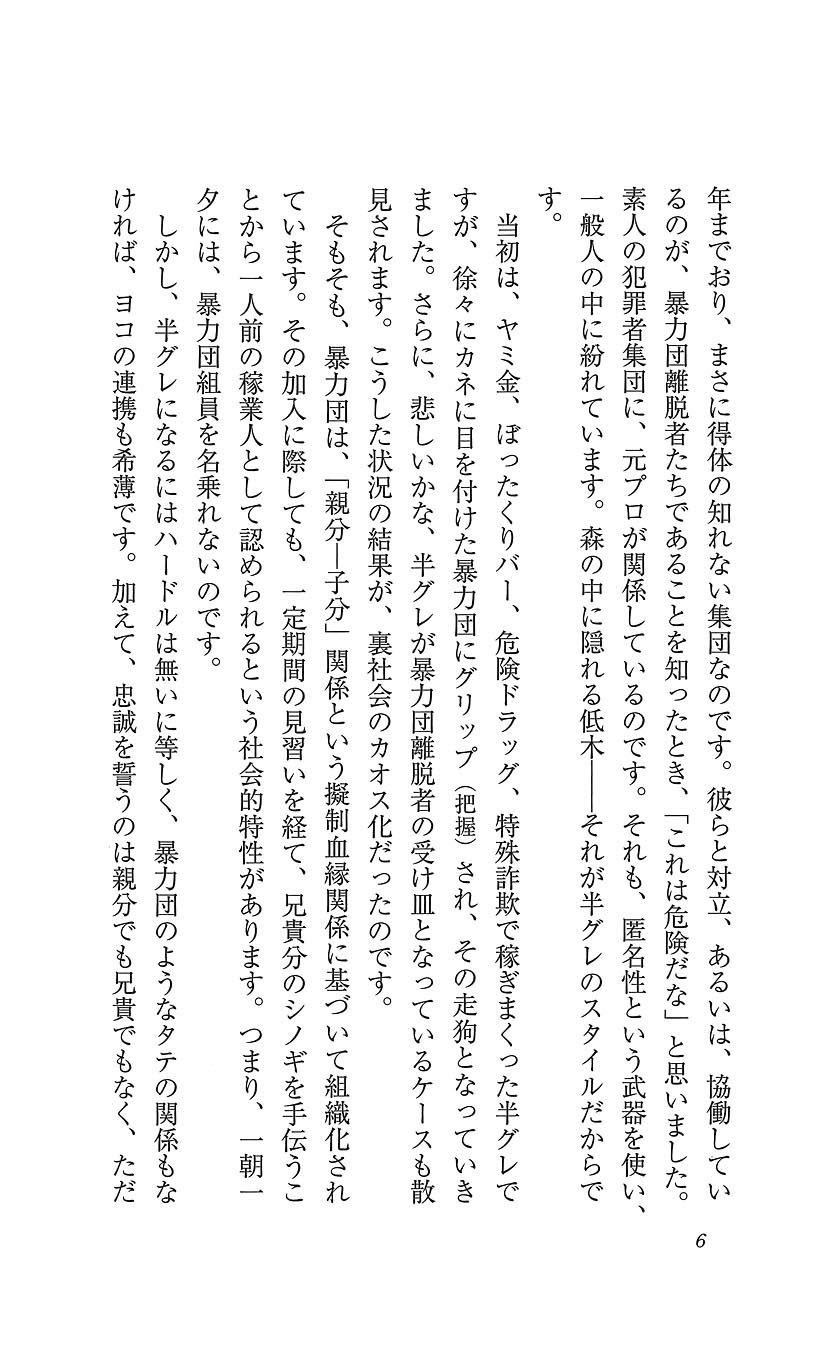 年までおり、まさに得体の知れない集団なのです。彼らと対立、あるいは、協働してい
るのが、暴力団離脱者たちであることを知ったとき、「これは危険だな」と思いました。
素人の犯罪者集団に、元プロが関係しているのです。それも、匿名性という武器を使い、
一般人の中に紛れています。森の中に隠れる低木――それが半グレのスタイルだからで
す。
当初は、ヤミ金、ぼったくりバー、危険ドラッグ、特殊詐欺で稼ぎまくった半グレで
すが、徐々にカネに目を付けた暴力団にグリップ（把握）され、その走狗となっていき
ました。さらに、悲しいかな、半グレが暴力団離脱者の受け皿となっているケースも散
見されます。こうした状況の結果が、裏社会のカオス化だったのです。
そもそも、暴力団は、「親分―子分」関係という擬制血縁関係に基づいて組織化され
ています。その加入に際しても、一定期間の見習いを経て、兄貴分のシノギを手伝うこ
とから一人前の稼業人として認められるという社会的特性があります。つまり、一朝一
夕には、暴力団組員を名乗れないのです。
しかし、半グレになるにはハードルは無いに等しく、暴力団のようなタテの関係もな
ければ、ヨコの連携も希薄です。加えて、忠誠を誓うのは親分でも兄貴でもなく、ただ
6